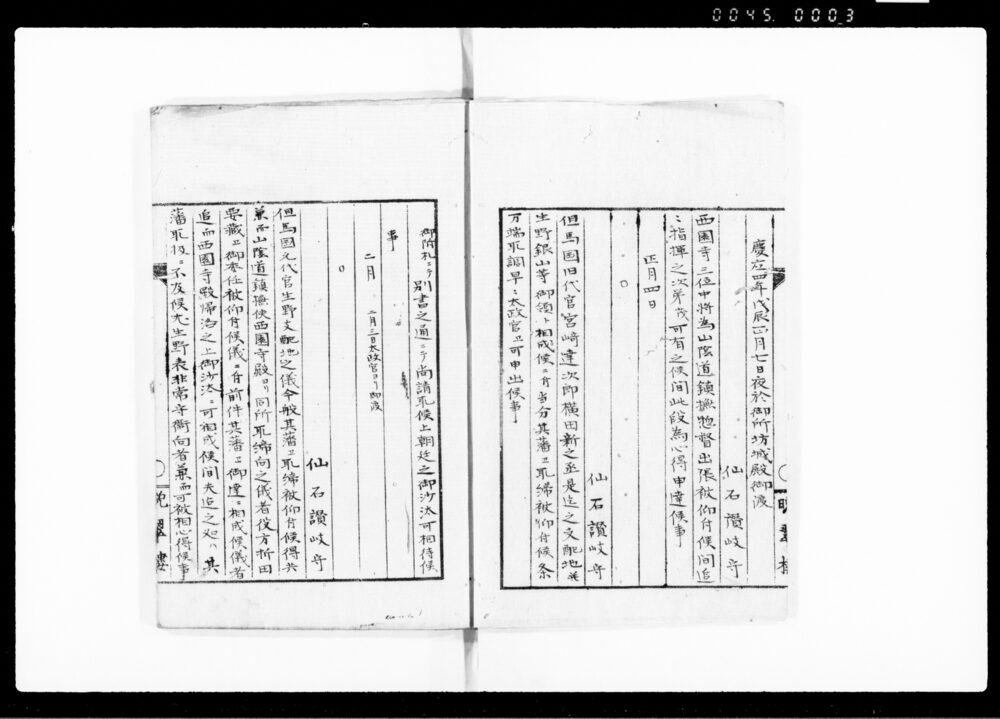 0045.0003
慶応四年戊辰正月七日夜於御所坊城殿御渡
仙石讃岐守
西園寺三位中将為山陰道鎮撫惣督出張被仰付候間追
々指揮之次第茂可有之候間此段為心得申達候事
正月四日
〇
仙石讃岐守
但馬国旧代官宮崎達次郎横田新之丞是迄之支配地並
生野銀山等御領ト相成候ニ付当分其藩ヱ取締被仰付候条
万端取調早々太政官ヱ可申出候事
御附札ニテ別書之通ニテ尚請取候上朝廷之御沙汰可相待候
事
二月 二月三日太政官ヨリ御渡
〇
仙石讃岐守
但馬国元代官生野支配地之儀今般其藩ヱ取締被仰付候得共
兼而山陰道鎮撫使西園寺殿ヨリ同所取締向之儀者役方折田
要蔵ヱ御委任被仰付候儀ニ付前件其藩ヱ御達ニ相成候儀者
追而西園寺殿帰洛之上御沙汰ニ可相成候間夫迄之処ハ其
藩取扱ニ不及候尤生野表非常守衛向者兼而可被相心得候事
晩翠楼